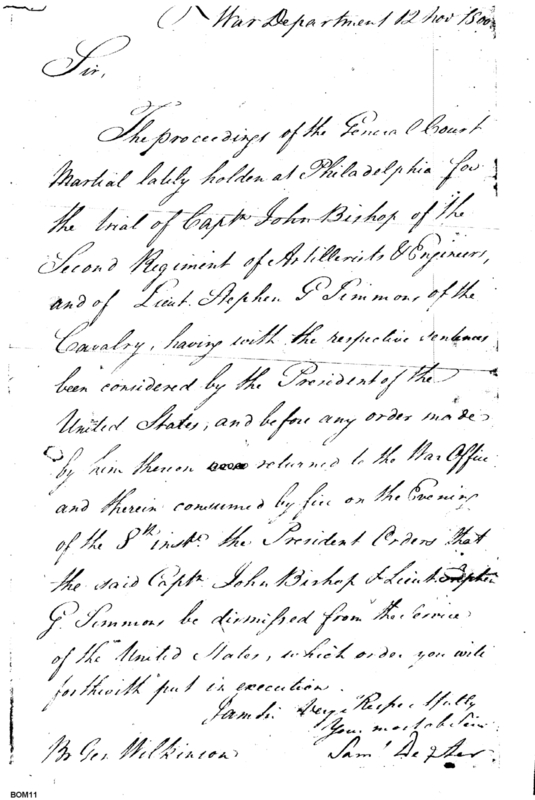 War Department 12 Nov 1800
Sir,
The proceedings of the General Court
Martial lately holden at Philadelphia for
the trial of Captn John Bishop of the
Second Regiment of Artillerists & Engineers,
and of Lieut. Stephen G Simmons of the
Cavalry, having with the respective sentences
been considered by the President of the
United States, and before any order made
by him thereon returned to the War Office
and therein consumed by fire on the Evening
of the 8th inst. the President Orders that
the said Captn John Bishop & Lieut. Stephen
G. Simmons be dismissed from the Service
of the United States, which order you will
forthwith put in execution.
I am Sir Very Respectfully
Your most ob Serv
B Gen Wilkinson Saml Dexter.
BOM11